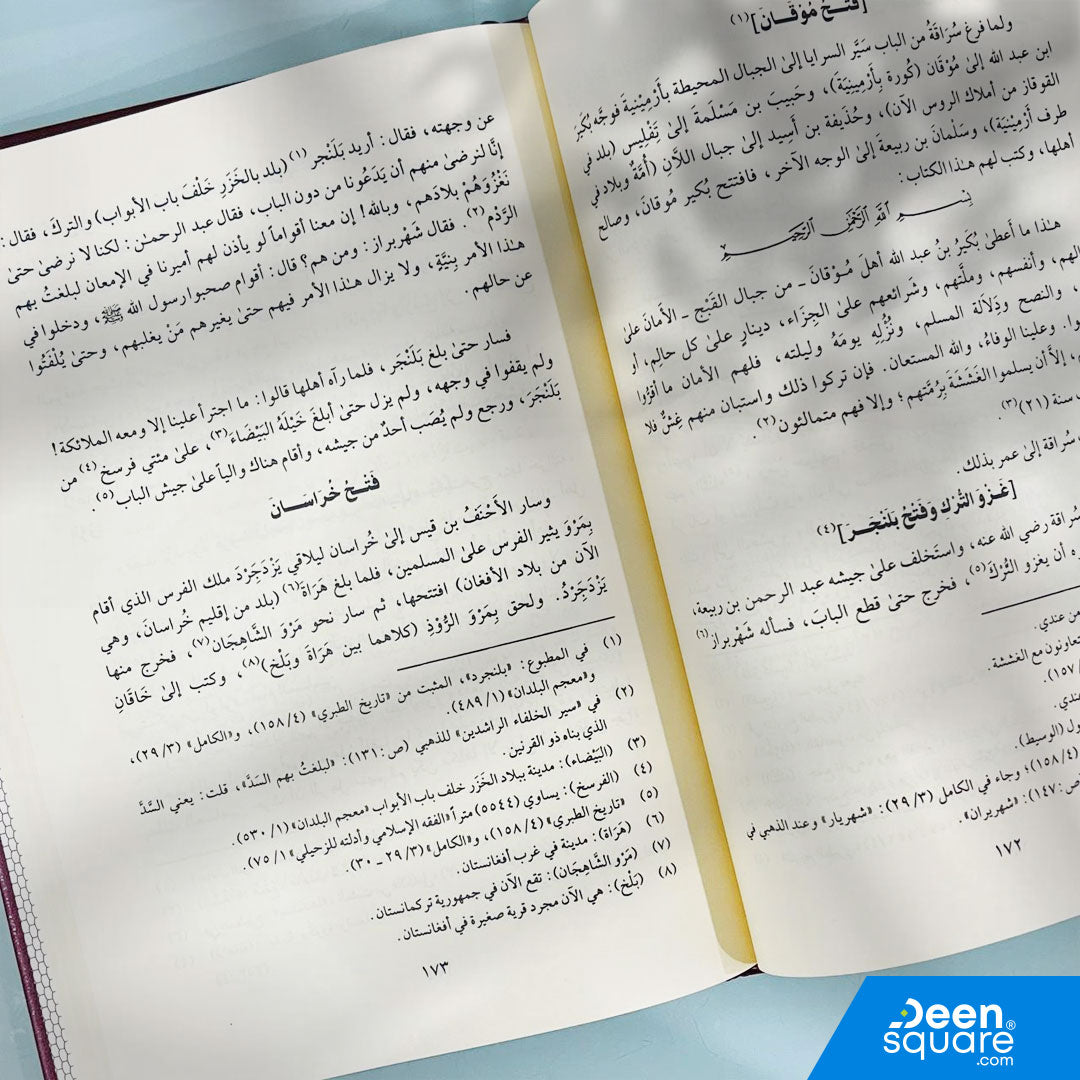 [فَتْحُ مُوْقَانَ](١)
ولما فرغ سُرَاقَةُ من الباب سَيَّر السرايا إلىٰ الجبال المحيطة بأَرْمِيْنِيةَ فوجَّه بُكَيْرَ
ابن عبد الله إلىٰ مُوْقَان (كُورة بِأَرْمِيْنِيَةَ)، وحَبِيبَ بن مَسْلَمةَ إلىٰ تَفْلِيس (بلد في
القوقاز من أملاك الروس الآن)، وحُذَيفة بن أَسِيد إلىٰ جبال اللَّان (أُمَّة وبلاد في
طرف أَرْمِيْنِيَة)، وسَلْمانَ بن ربيعة إلىٰ الوجه الآخر، فافتتح بُكير مُوقانَ، وصالح
أهلها، وكتب لهم هـٰذا الكتاب:
بسم الله الرحمن الرحيم
هـٰذا ما أعطىٰ بُكَيرُ بنُ عبد الله أهلَ مُوْقانَ ـ من جبال القَبْج ـ الأَمانَ علىٰ
وأنفسهم، وملَّتهم، وشَرائعهم علىٰ الجِزَاء، دينارٍ علىٰ كل حالِم، أو
والنصح ودِلَالة المسلم، ونُزُلِه يومَهُ وليلته، فلهم الأمان ما أقرُّوا
وعلينا الوفاءُ، والله المستعان. فإن تركوا ذلك واستبان منهم غِشٌّ فلا
إلا أن يسلموا الغَشَشَةَ بِرُمَّتهم؛ وإلا فهم متمالئون(٢).
سنة (٢١)(٣).
سُراقة إلىٰ عمر بذلك.
[غَزْوُ التُّرْكِ وَفَتْحُ بَلَنْجَرَ](٤)
سُراقة رضي الله عنه، واستَخلف علىٰ جيشه عبد الرحمن بن ربيعة،
أن يغزو التُّرْكَ(٥)، فخرج حتىٰ قطع البابَ، فسأله شَهْربراز(٦)
من عندي.
يتعاونون مع الغششة.
١٥٧).
عندي.
(الوسيط).
(٤/١٥٨)؛ وجاء في الكامل (٣/٢٩): «شهريار» وعند الذهبي في
ص:١٤٧): «شهريران».
١٧٢
عن وجهته، فقال: أريد بَلَنْجر(١) (بلد بالخَزَرِ خَلْفَ باب الأبواب) والتركَ، فقال:
إنَّا لنرضىٰ منهم أن يَدَعُونا من دون الباب، فقال عبد الرحمـٰن: لكنا لا نرضىٰ حتىٰ
نَغْزُوَهُمْ بلادَهم، وبالله! إن معنا أقواماً لو يأذن لهم أميرنا في الإمعان لبلغتُ بهم
الرَّدْم(٢). فقال شَهْربراز: ومن هم؟ قال: أقوام صحبوا رسول الله ﷺ، ودخلوا في
هـٰذا الأمر بِنِيَّةٍ، ولا يزال هـٰذا الأمر فيهم حتىٰ يغيرهم مَنْ يغلبهم، وحتىٰ يُلْفَتُوا
عن حالهم.
فسار حتىٰ بلغ بَلَنْجَر، فلما رآه أهلها قالوا: ما اجترأ علينا إلا ومعه الملائكة!
ولم يقفوا في وجهه، ولم يزل حتىٰ أبلغ خَيْلَهُ البَيْضَاءَ(٣)، علىٰ مئتي فرسخ(٤) من
بَلَنْجَرَ، ورجع ولم يُصَب أحدٌ من جيشه، وأقام هناك والياً علىٰ جيش الباب(٥).
فَتْحُ خُرَاسَانَ
وسار الأَحْنَفُ بن قيس إلىٰ خُراسان ليلاقي يَزْدَجِرْدَ ملك الفرس الذي أقام
بِمَرْوَ يثير الفرس علىٰ المسلمين، فلما بلغ هَرَاةَ(٦) (بلد من إقليم خُراسانَ، وهي
الآن من بلاد الأفغان) افتتحها، ثم سار نحو مَرْوَ الشَّاهِجَان(٧)، فخرج منها
يَزْدَجِرْدُ. ولحق بِمَرْوِ الرُّوْذِ (كلاهما بين هَرَاةَ وبَلْخ)(٨)، وكتب إلىٰ خَاقَانِ
(١) في المطبوع: «بلنجرد»، المثبت من «تاريخ الطبري» (٤/١٥٨)، و«الكامل» (٣/٢٩)،
و«معجم البلدان» (١/٤٨٩).
(٢) في «سير الخلفاء الراشدين» للذهبي (ص:١٣١): «لبلغتُ بهم السَدَّ»، قلت: يعني السَّدَّ
الذي بناه ذو القرنين.
(٣) (البَيْضاء): مدينة ببلاد الخَزَر خلف باب الأبواب «معجم البلدان» (١/٥٣٠).
(٤) (الفرسخ): يساوي (٥٥٤٤) متراً «الفقه الإسلامي وأدلته للزحيلي» ١/٧٥).
(٥) «تاريخ الطبري» (٤/١٥٨)، و«الكامل» (٣/٢٩ ـ ٣٠).
(٦) (هَرَاة): مدينة في غرب أفغانستان.
(٧) (مَرْو الشَّاهِجَان): تقع الآن في جمهورية تركمانستان.
(٨) (بَلْخ): هي الآن مجرد قرية صغيرة في أفغانستان.
١٧٣
Deen
square®
.com